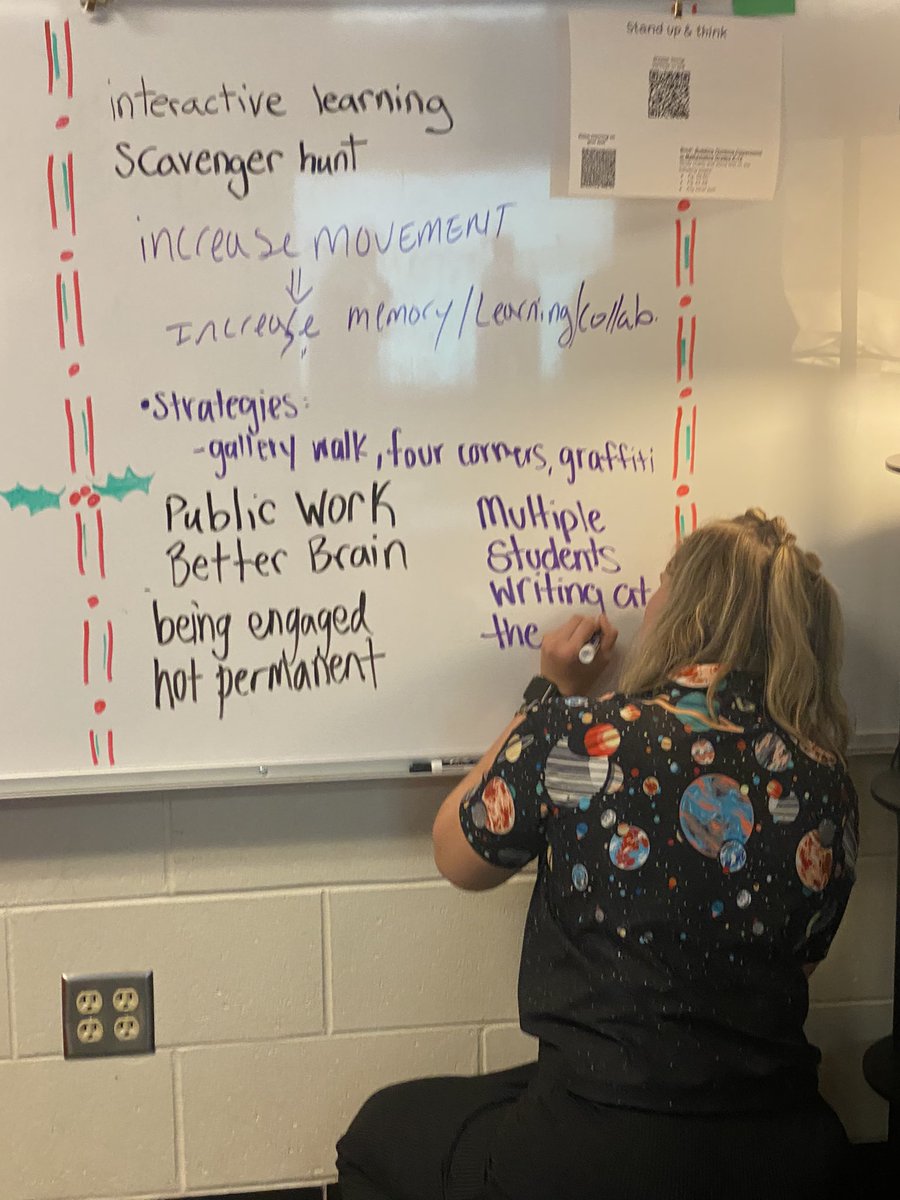 Stand up & think
interactive learning
Scavenger hunt
increase MOVEMENT
Increase memory/Learning/collab.
•Strategies:
-gallery walk, four corners, graffiti
Public Work
Better Brain
being engaged
not permanent
Multiple
Students
writing at
the